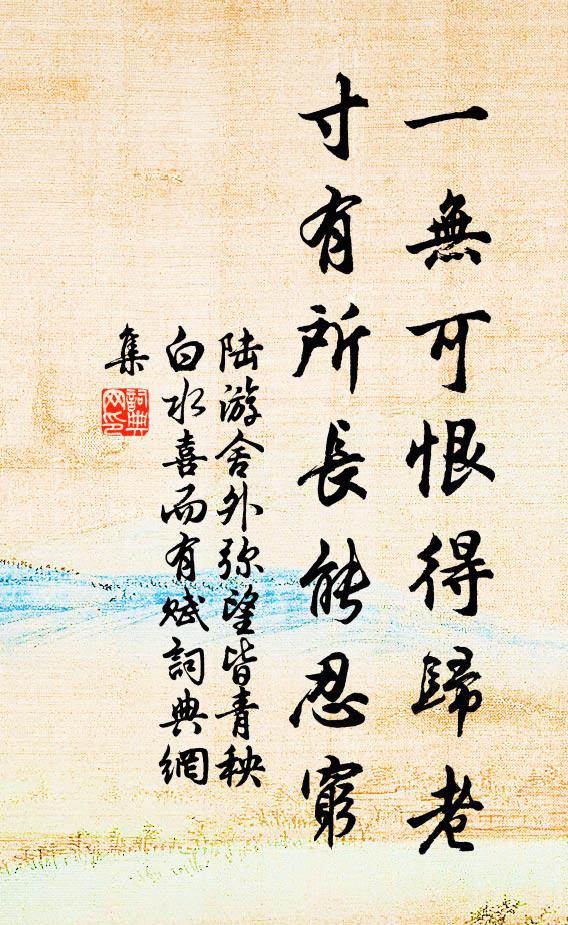 一無可恨得歸老
寸有所長能忍窮
陆游舍外弥望皆青秧
白水喜而有赋詞典網
集
詞典
网印